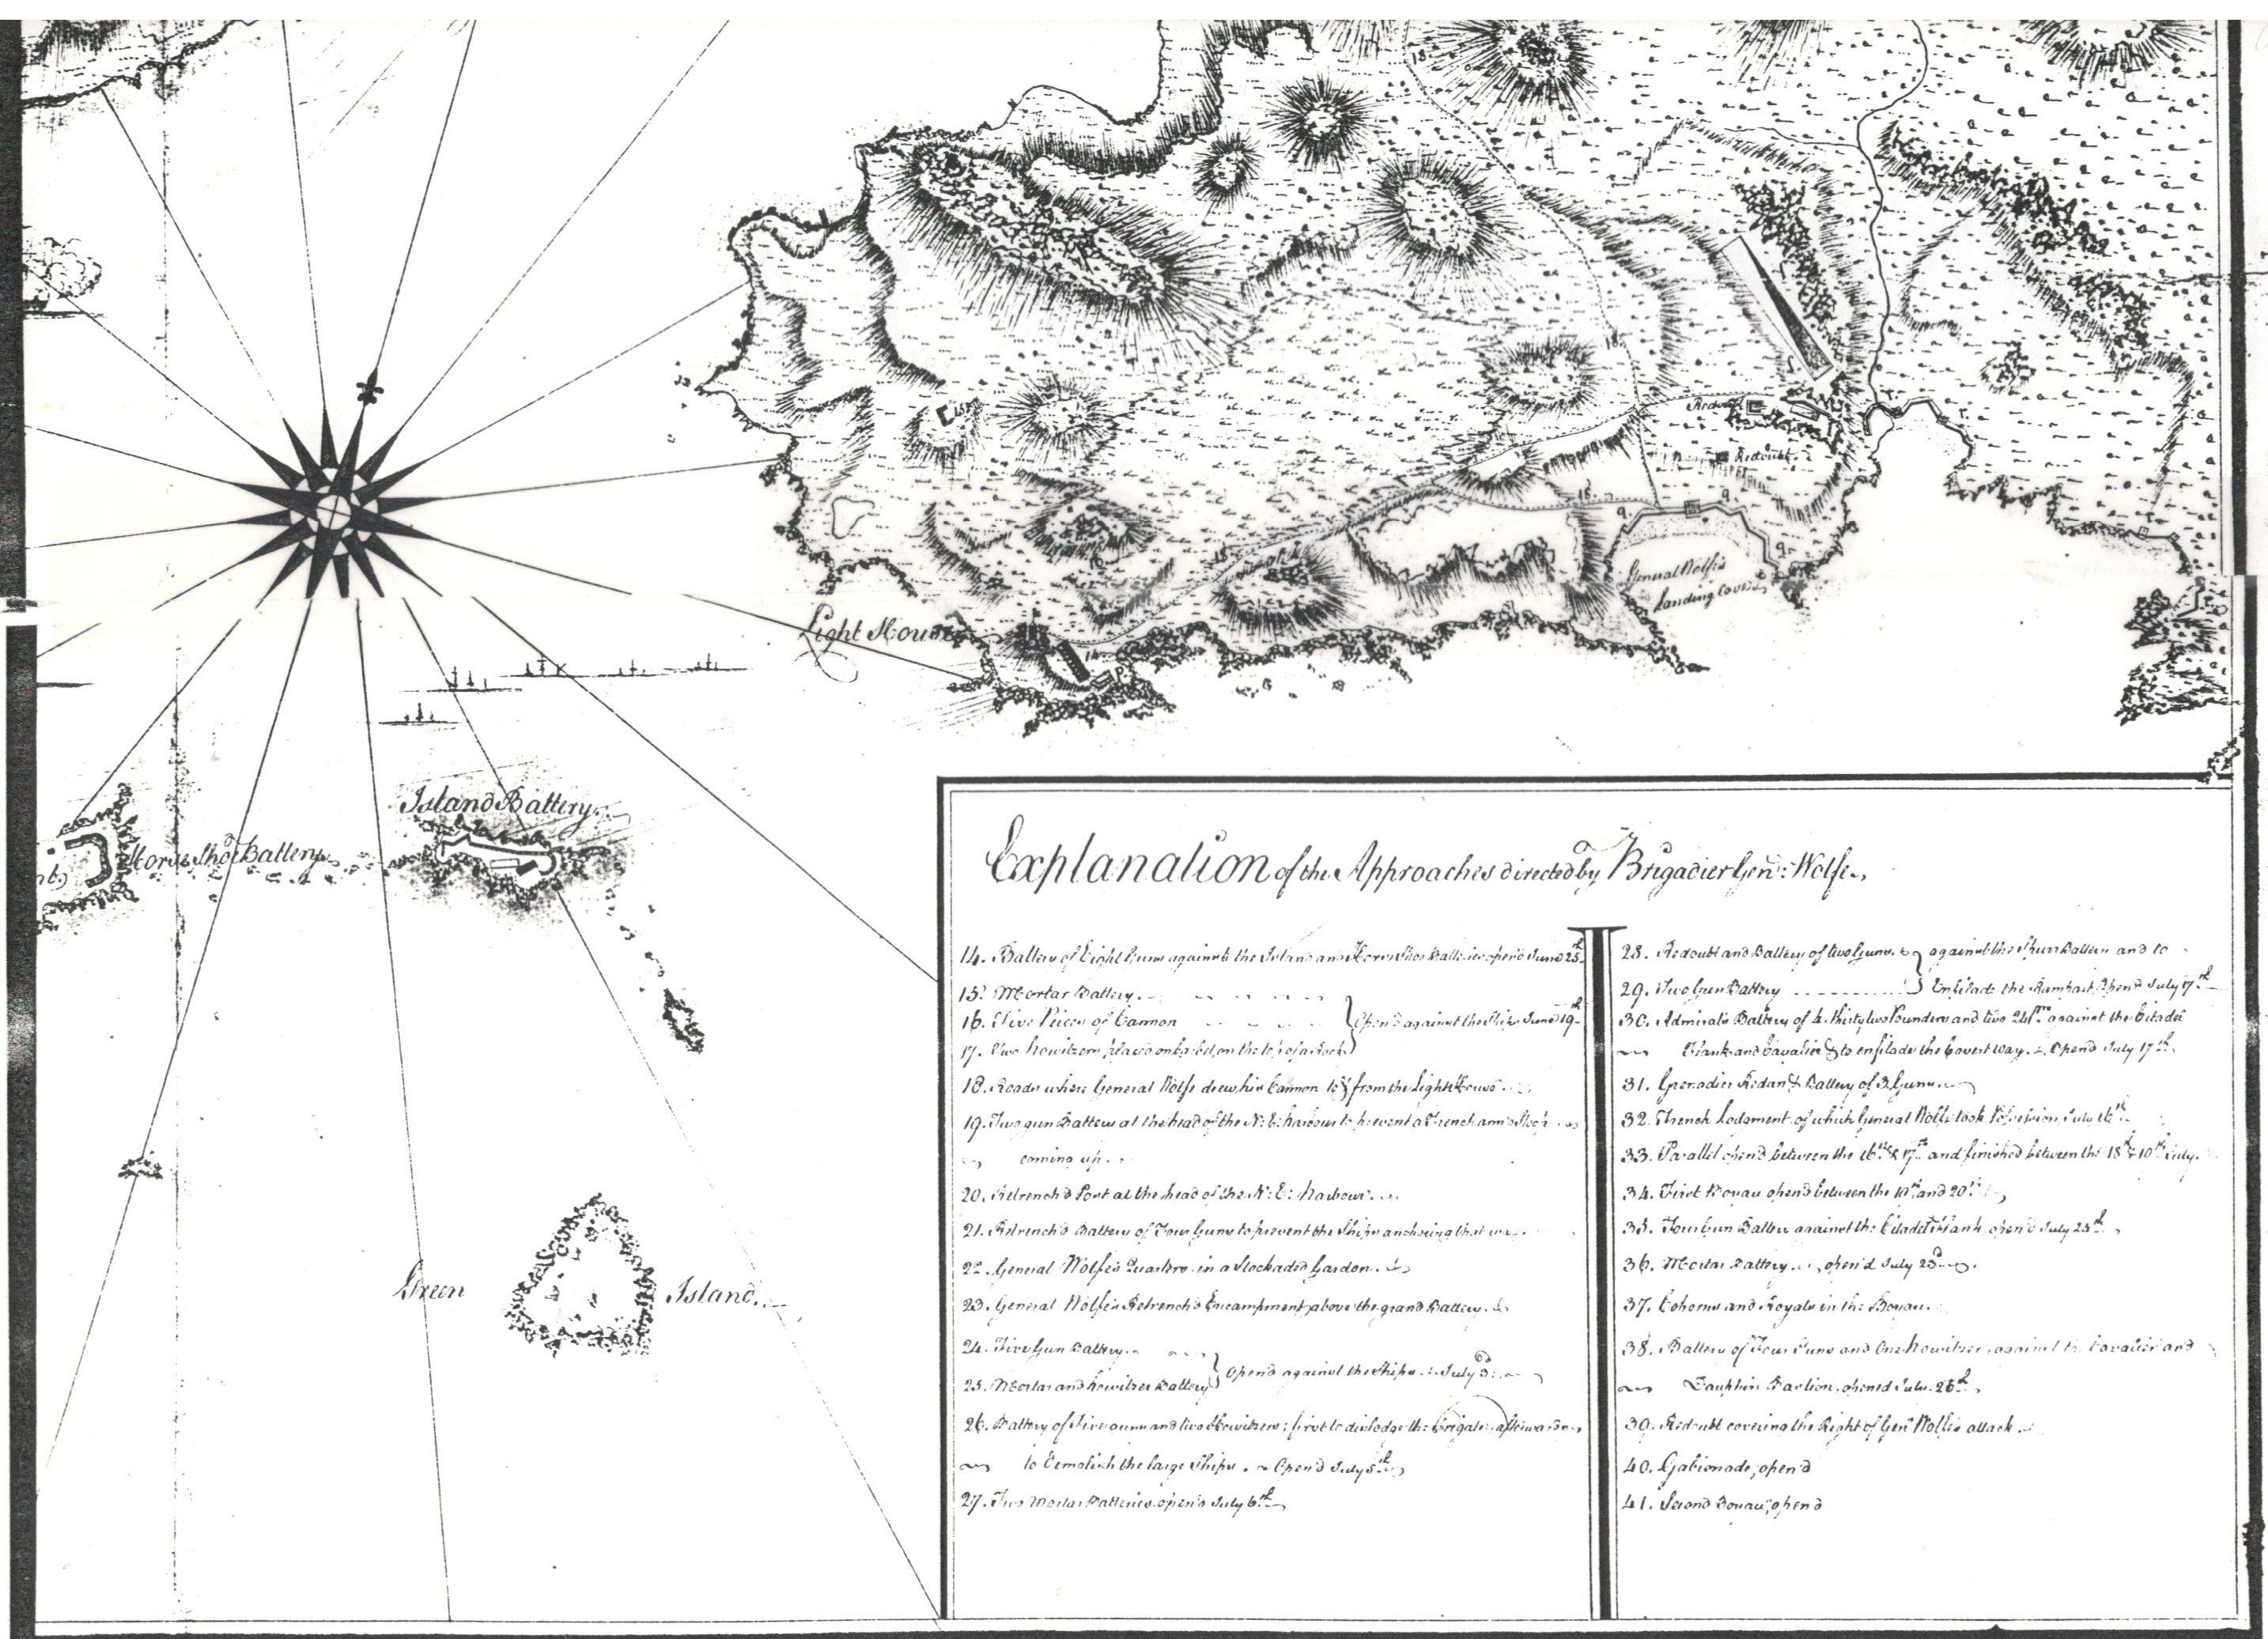 18.
18.
15.
Redoubt
Redoubt.
18.
9.
9.
9.
16.
18.
General Wolfe's
Landing Cove
Light House
14.
Island Battery.
Horse Shoe Battery
Green Island.
Explanation of the Approaches directed by Brigadier Gen: Wolfe.
14. Battery of Eight Guns against the Island and Horse Shoe Batteries open'd June 25th
15. Mortar Battery.
16. Five Pieces of Cannon
17. Two howitzers placed on the top of a Rock
} Open'd against the Ships June 19th
18. Roads where General Wolfe drew his Cannon to & from the Light House.
19. Two gun Battery at the head of the N: E: harbour to prevent a French arm'd Sloop
coming up.
20. Retrench'd Post at the head of the N: E: harbour.
21. Retrench'd Battery of Four Guns to prevent the Ships anchoring that way.
22. General Wolfe's Quarters in a Stockaded Garden.
23. General Wolfe's Retrench'd Encampment above the grand Battery.
24. Five Gun Battery.
25. Mortar and howitzer Battery
} Open'd against the Ships. July 3d.
26. Battery of Five guns and two Howitzers; first to dislodge the Frigate, afterwards
to Demolish the large Ships. Open'd July 5th
27. Two Mortar Batteries open'd July 6th
28. Redoubt and Battery of two Guns.
29. Two Gun Battery
} against the Spur Battery and to
Enfilade the Rampart Open'd July 17th
30. Admirals Battery of 4 thirty two Pounders and two 24prs against the Citadel
Flank and Cavalier & to enfilade the Covert Way. Open'd July 17th.
31. Grenadier Redan & Battery of 3 Guns.
32. French Lodgment of which General Wolfe took Possession July 16th
33. Parallel open'd between the 16th & 17th and finished between the 18th & 19th July.
34. First Boyau open'd between the 19th and 20th
35. Four Gun Battery against the Citadel Flank open'd July 25th
36. Mortar Battery. open'd July 23d.
37. Cohorns and Royals in the Boyau.
38. Battery of Four Guns and One howitzer, against the Cavalier and
Dauphin Bastion, opened July 26th
39. Redoubt covering the Right of Gen Wolfe's attack.
40. Gabionade, open'd
41. Second Boyau, open'd